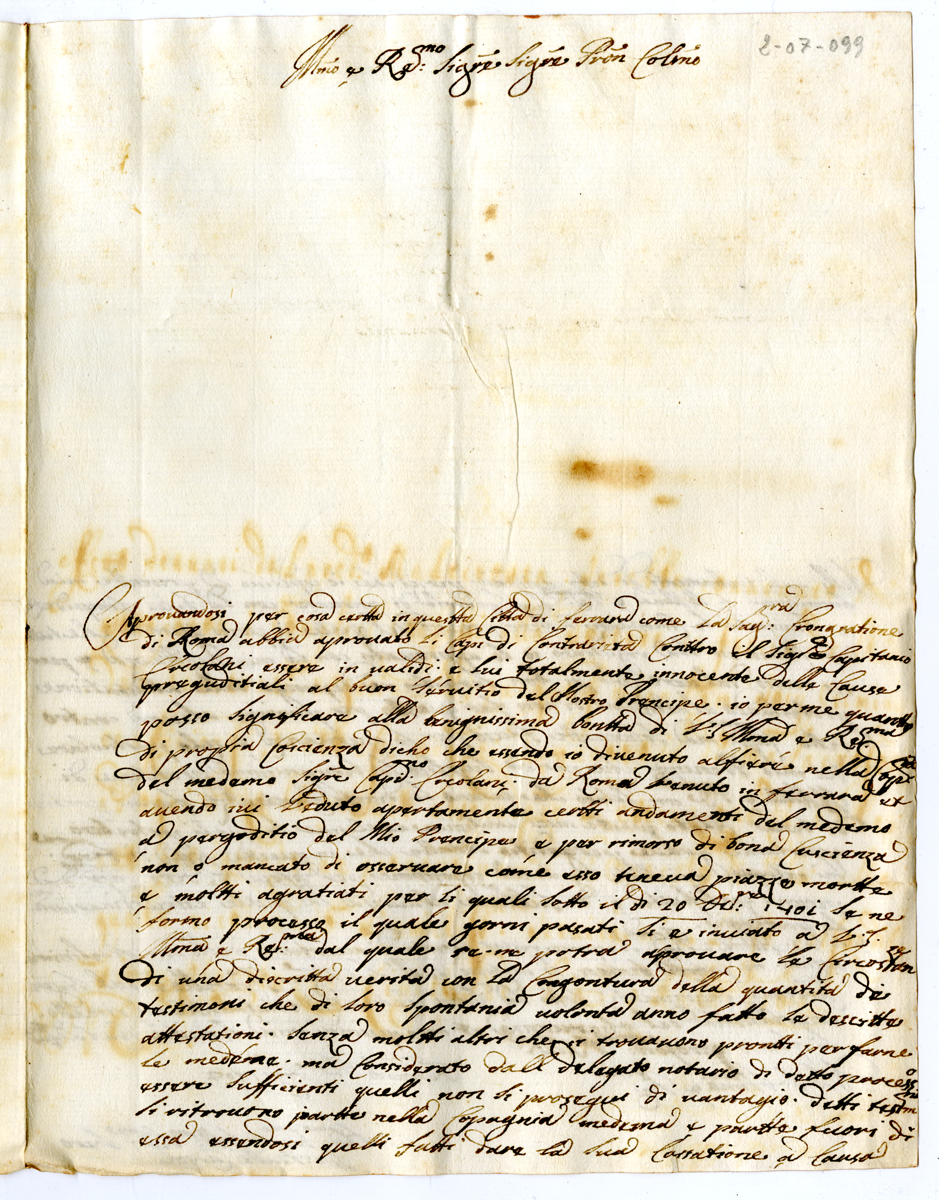 2-07-099
Illmo e Ređ:mo Sigre Sigre Pron Colmo
Aprouandosi per cosa certta in questta Citta di ferrara come La Sag:ra Crongratione
di Roma abbia aprouato li Capi di Contrarieta Conttro el Sigre Capitanio
Ercolani essere in ualidi e lui totalmente innocente delle Cause
pregiuditiali al buon Seruitio del Nostro Prencipe. io per me quantto
posso significare alla benignissima bontta di V.S. Illma e Reuma
di propria Coscienza dicho che essendo io diuenuto alfiere nella Compa
del medemo Sigre Capno Ercolani, da Roma uenuto in ferrara et
auendo iui Veduto apertamente certti andamenti del medemo
a pergoditio del Mio Prencipe e per rimorso di bona Cuscienza
non o mancato di osseruare come esso teneua piazze mortte
e moltti agratiati per li quali sotto il di 20 1701 Se ne
formo processo il quale gorni pasati Si e inuiato a V.S.
Illma e Reuma dal quale se-ne potra aprouare le Circostan
di una discritta uerita con la Congontura della quantita de
testimoni che di loro Spontania uolonta anno fatto le descritte
attestationi. Senza moltti altri che si trouauono prontti per farne
le medeme. ma Considerato dall delegato notario di detto processo
essere Sufficienti quelli non si prosegui di uantagio. detti testim
Si ritrouono partte nella Copagnia medema e partte fuori di
essa essendosi quelli fatti dare la sua Cassatione a Causa